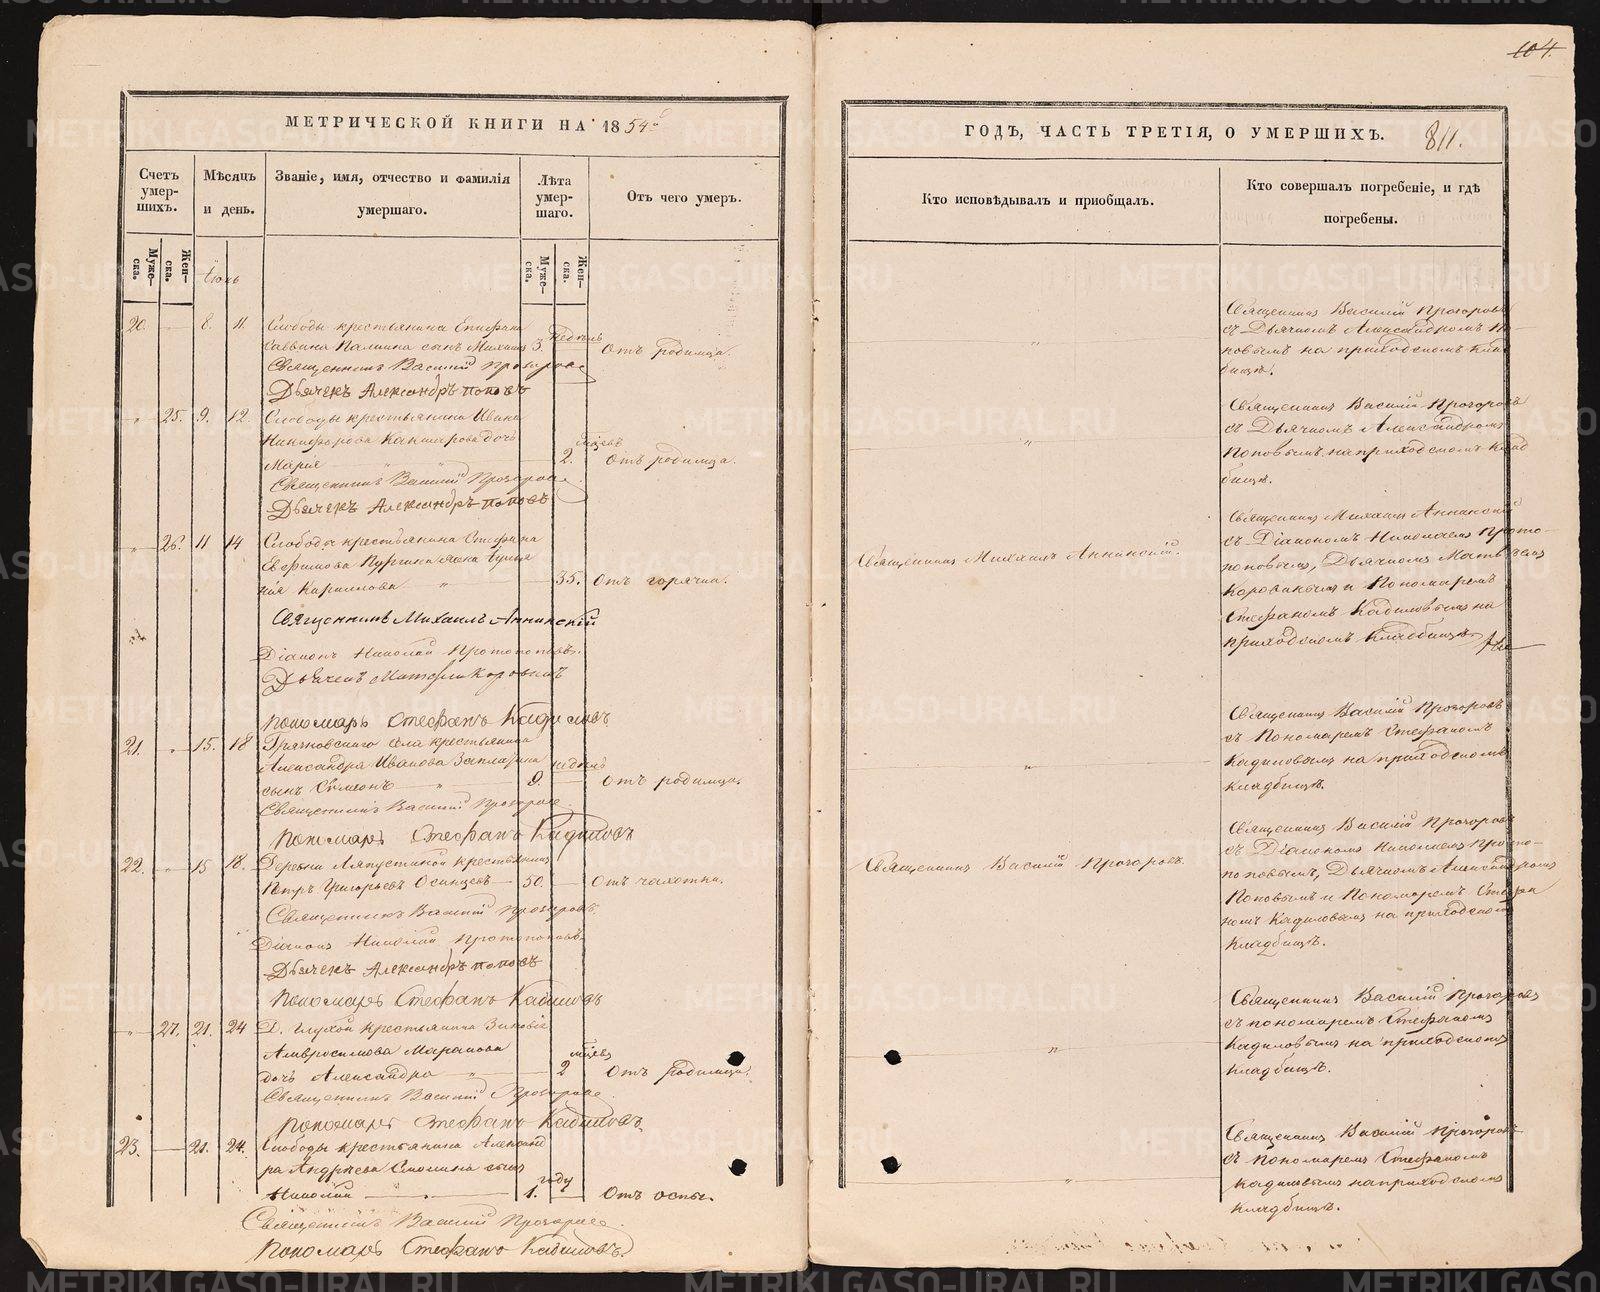 104.
МЕТРИЧЕСКОЙ КНИГИ НА 1854й
Счетъ умер-шихъ.
Муже-ска.
Жен-ска.
Мѣсяцъ и день.
Званіе, имя, отчество и фамилія умершаго.
Лѣта умер-шаго.
Муже-ска.
Жен-ска.
Отъ чего умеръ.
Іюнь
20. 8. 11. Слободы крестьянина Епифана
Саввина сынъ Михаилъ 3. недѣль Отъ родимца.
Священникъ Василій Прозоровъ
Дьячекъ Александръ Поповъ
25. 9. 12. Слободы крестьянина Ивана
Никифорова дочь
Марія 2. мѣсяцъ Отъ родимца.
Священникъ Василій Прозоровъ
Дьячекъ Александръ Поповъ
26. 11 14 Слободы крестьянина Стефана
Евфимова жена
Кирилова " 35. Отъ горячки.
Священникъ Михаилъ Аннинскій
Діаконъ Николай Протопоповъ.
Дьячекъ Матфей Коровинъ
Пономарь Стефанъ Кадиловъ
21. " 15. 18 села крестьянина
Александра Иванова недѣль
сынъ Сѵмеонъ " 9. Отъ родимца.
Священникъ Василій Прозоровъ
Пономарь Стефанъ Кадиловъ
22. 15 18. Деревни Ляпустиной крестьянинъ
Петръ Григорьевъ Осинцевъ 50. Отъ чахотки.
Священникъ Василій Прозоровъ
Діаконъ Николай Протопоповъ
Дьячекъ Александръ Поповъ
Пономарь Стефанъ Кадиловъ
" 27. 21. 24 Д. Глухой крестьянина Зиновія
Амвросимова
дочь Александра " 2 Отъ родимца.
Священникъ Василій Прозоровъ
Пономарь Стефанъ Кадиловъ
23. 21. 24. Слободы крестьянина Александ
ра Андрѣева сынъ
Николай 1. году Отъ оспы.
Священникъ Василій Прозоровъ
Пономарь Стефанъ Кадиловъ.
ГОДЪ, ЧАСТЬ ТРЕТІЯ, О УМЕРШИХЪ. 811.
Кто исповѣдывалъ и приобщалъ.
Кто совершалъ погребеніе, и гдѣ погребены.
"
Священникъ Василій Прозоровъ
съ Дьячкомъ Александромъ По
повымъ на приходскомъ клад
бищѣ.
"
Священникъ Василій Прозоровъ
съ Дьячкомъ Александромъ
Поповымъ на приходскомъ клад
бищѣ.
Священникъ Михаилъ Аннинскій.
Священникъ Михаилъ Аннинскій
съ Діакономъ Николаемъ Прото-
поповымъ, Дьячкомъ Матвѣемъ
Коровинымъ и Пономаремъ
Стефаномъ Кадиловымъ на
приходскомъ кладбищѣ.
"
Священникъ Василій Прозоровъ
съ Пономаремъ Стефаномъ
Кадиловымъ на приходскомъ
кладбищѣ.
Священникъ Василій Прозоровъ.
Священникъ Василій Прозоровъ
съ Діакономъ Николаемъ Прото-
поповымъ, Дьячкомъ Александромъ
Поповымъ и Пономаремъ Стефа
номъ Кадиловымъ на приходскомъ
кладбищѣ.
"
Священникъ Василій Прозоровъ
съ пономаремъ Стефаномъ
Кадиловымъ на приходскомъ
кладбищѣ.
"
Священникъ Василій Прозоровъ
съ Пономаремъ Стефаномъ
Кадиловымъ на приходскомъ
кладбищѣ.
METRIKI.GASO-URAL.RU